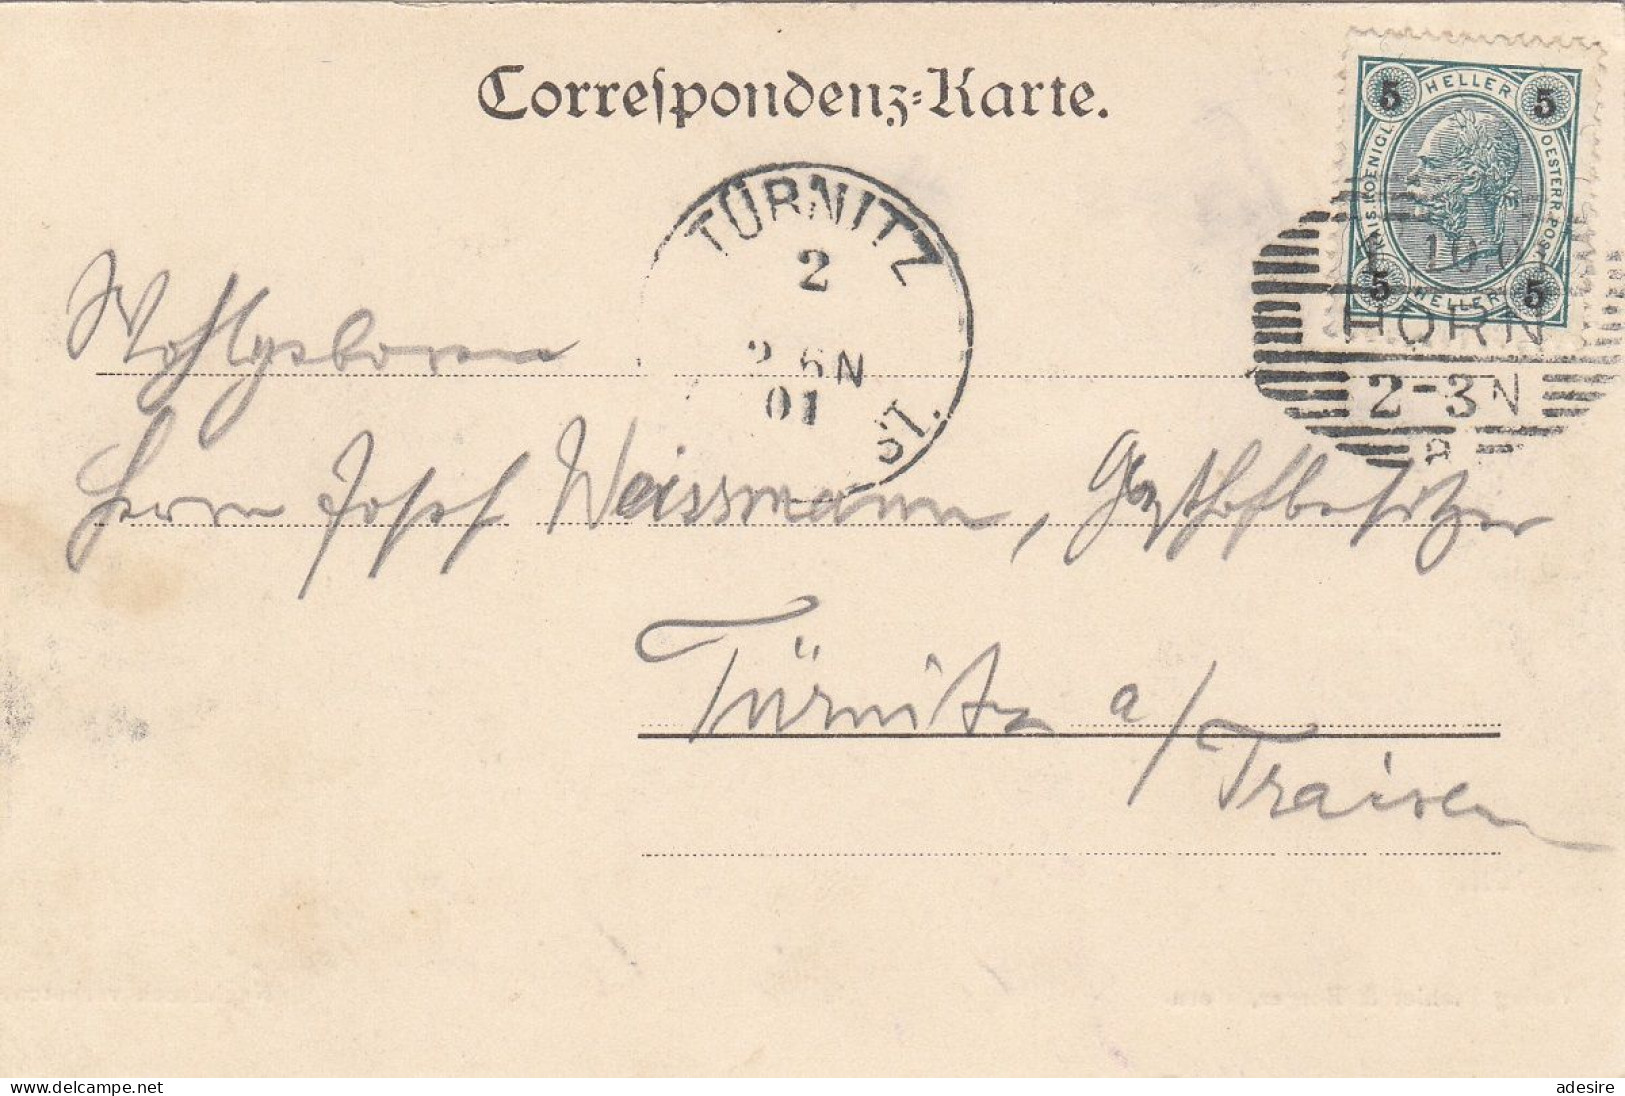 Correſpondenz-Karte.
5 HELLER 5
KAIS. KOENIGL. OESTERR. POST.
5 HELLER 5
10.01
HORN
2-3N
TÜRNITZ
2
6 N
01
ST.
Wohlgeboren
Herrn Josef Weissmann, Gasthofbesitzer
Türnitz a/Traisen
www.delcampe.net
adesire